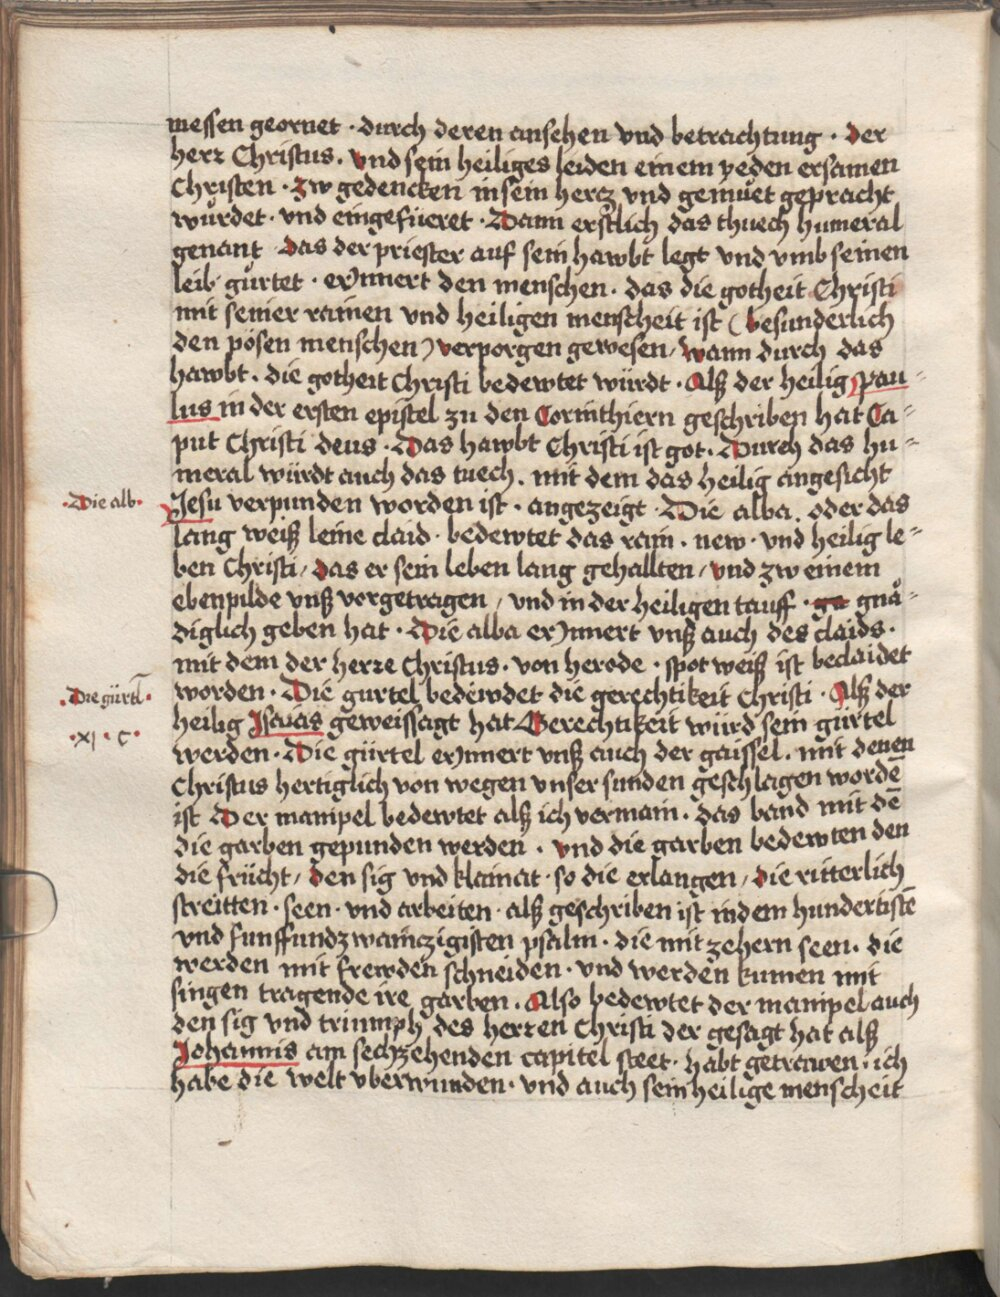 messen geornet · durch deren ansehen vnd betrachtung · der
herz Christus. vnd sein heiliges leiden einem yeden ersamen
Christen · zw gedencken in sein hercz vnd gemüet gepracht
würdet · vnd eingefüeret · Dann erstlich das thuech humeral
genant das der priester auf sein hawbt legt vnd vmb seinen
leib gürtet · erynnert den menschen · das die gotheit Christi
mit seiner rainen vnd heiligen menscheit ist (besunderlich
den pösen menschen) verporgen gewesen, wann durch das
hawbt. die gotheit Christi bedewtet würdt · Alß der heilig Pau-
lus in der ersten epistel zu den Corinthiern geschriben hat Ca-
put Christi deus · Das hawbt Christi ist got · Durch das hu-
meral würdt auch das tuech. mit dem das heilig angesicht
·Die alb·
Jesu verpunden worden ist · angezeigt · Die alba. oder das
lang weiß leine claid · bedewtet das rain . new · vnd heilig le-
ben Christi, das er sein leben lang gehallten, vnd zw einem
ebenpilde vnß vorgetragen, vnd in der heiligen tauff · ga gnå-
diglich geben hat · Die alba erynnert vnß auch des claids ·
mit dem der herre Christus · von herode · spot weiß ist beclaidet
·Die gürtl·
worden · Die gurtel bedewdet die gerechtikeit Christi · Alß der
·XI · C·
heilig Isaias geweissagt hat Gerechtikeit würd sein gurtel
werden · Die gürtel erynnert vnß auch der gaissel. mit denen
Christus hertiglich von wegen vnser sunden geschlagen wordē
ist Der manipel bedewtet alß ich vermain. das band mit dē
die garben gepunden werden . vnd die garben bedewten den
die frücht, den sig vnd klainat · so die erlangen, die ritterlich
streitten · seen · vnd arbeiten · alß geschriben ist in dem hundertistē
vnd funffundzwainczigisten psalm · die mit zehern seen. die
werden mit frewden schneiden · vnd werden kumen mit
singen tragende ire garben. Also bedewtet der manipel auch
den sig vnd triumph des herren Christi der gesagt hat alß
Johannis am sechzehenden capitel steet · habt getrawen · ich
habe die welt vberwunden · vnd auch sein heilige menscheit